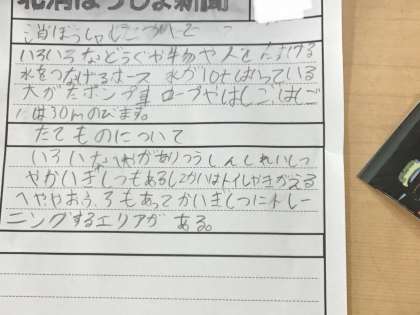 北消ぼうしょ新聞
消ぼうしゃについて
いろいろなどうぐや生物や人をたすける
水をつなげるホース 水が10tはいっている
大がたポンプ車 ロープやはしご、はしご
は30mのびます。
たてものについて
いろいろなへやがありつうしんしれいしつ
やかいぎしつもあるし2かいはトイレやきがえる
へややおふろもあってかいぎしつにトレー
ニングするエリアがある。